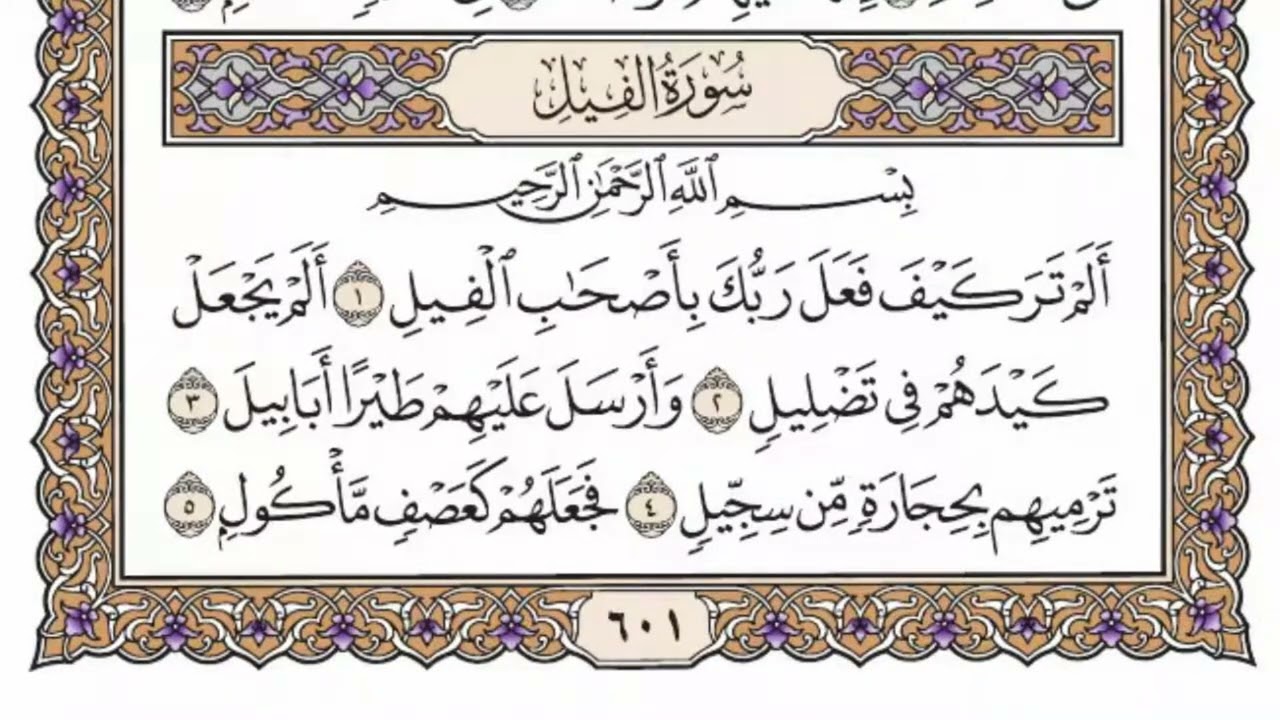 سُورَةُ الفِيلِ
بِسْمِ ٱللَّهِ ٱلرَّحْمَٰنِ ٱلرَّحِيمِ
أَلَمْ تَرَ كَيْفَ فَعَلَ رَبُّكَ بِأَصْحَٰبِ ٱلْفِيلِ ١ أَلَمْ يَجْعَلْ
كَيْدَهُمْ فِى تَضْلِيلٍ ٢ وَأَرْسَلَ عَلَيْهِمْ طَيْرًا أَبَابِيلَ ٣
تَرْمِيهِم بِحِجَارَةٍ مِّن سِجِّيلٍ ٤ فَجَعَلَهُمْ كَعَصْفٍ مَّأْكُولٍ ٥
٦٠١